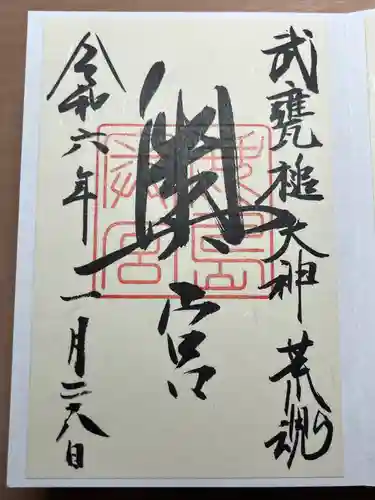 武甕槌大神荒魂
奥宮
令和六年一月二八日